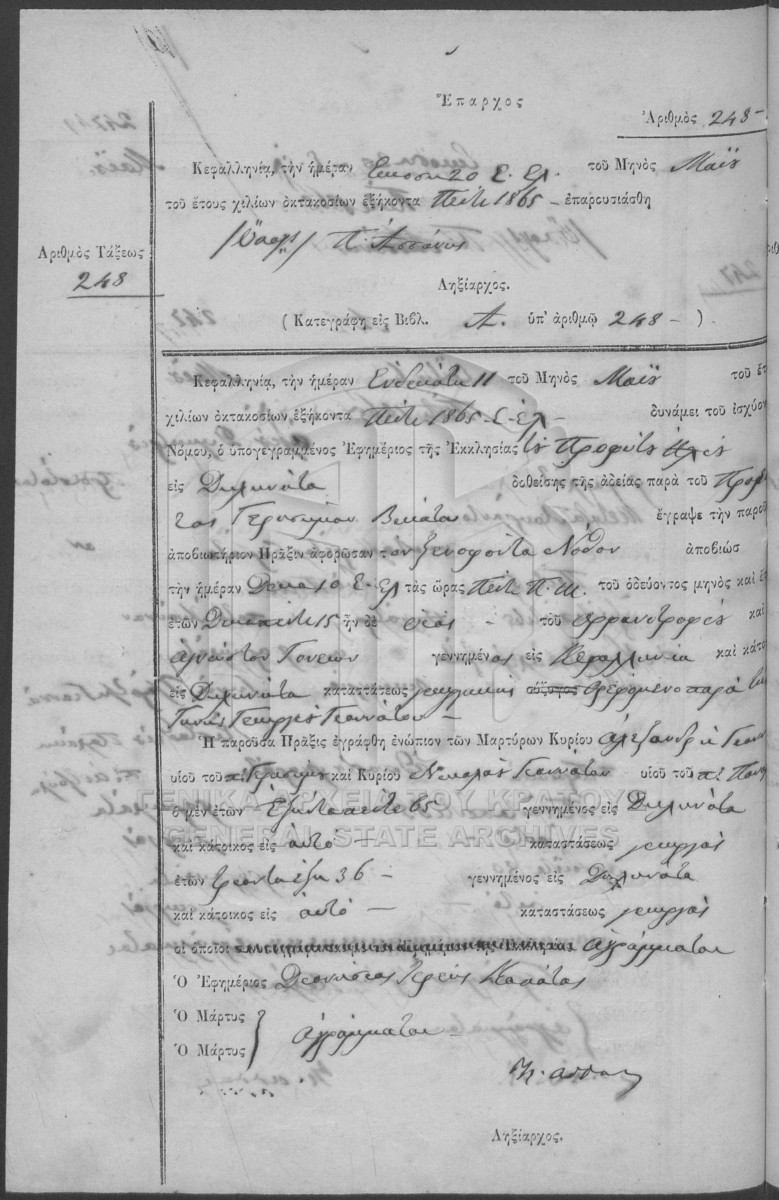 Ἔπαρχος
Ἀριθμὸς 248 –
Κεφαλληνία, τὴν ἡμέραν Εικοση 20 Ε. Ελ. τοῦ Μηνὸς Μαΐου
τοῦ ἔτους χιλίων ὀκτακοσίων ἑξήκοντα Πέντε 1865 – ἐπαρουσιάσθη
Ἀριθμὸς Τάξεως
248
Ληξίαρχος.
( Κατεγράφη εἰς Βιβλ. Α. ὑπ' ἀριθμῷ 248 – )
Κεφαλληνία, τὴν ἡμέραν Ενδεκάτη 11 τοῦ Μηνὸς Μαΐου τοῦ ἔτ
χιλίων ὀκτακοσίων ἑξήκοντα Πέντε 1865 Ε. Ελ – δυνάμει τοῦ ἰσχύον
Νόμου, ὁ ὑπογεγραμμένος Ἐφημέριος τῆς Ἐκκλησίας του Προφύτου Ηλιού
εἰς Διλινάτα δοθείσης τῆς ἀδείας παρὰ τοῦ
Γερασιμου ἔγραψε τὴν παροῦ
ἀποβιωτήριον Πρᾶξιν ἀφορῶσαν τον Ξενοφόντα Νόθον ἀποβιώσ
τὴν ἡμέραν Δεκα 10 Ε. Ελ τὰς ὥρας Πέντε Π. Μ. τοῦ ὁδεύοντος μηνὸς καὶ ἔτ
ἐτῶν Δεκαπέντε 15 ἦν δὲ υιὸς – τοῦ ορφανοτροφίου καὶ
αγνώστον Γονέων γεννημένος εἰς Κεφαλληνία καὶ κάτο
εἰς Διλινάτα καταστάσεως γεωργικῆς παρὰ
Γεωργίου Γιαννάτου –
Ἡ παροῦσα Πρᾶξις ἐγράφθη ἐνώπιον τῶν Μαρτύρων Κυρίου Αλεξανδρου
υἱοῦ τοῦ π: Γερασιμου καὶ Κυρίου Νικολάου Γιαννάτου υἱοῦ τοῦ π:
ὁ μὲν ἐτῶν Εξήντα πέντε 65 γεννημένος εἰς Διλινάτα
καὶ κάτοικος εἰς αυτὸ – καταστάσεως γεωργὸς
ἐτῶν τριαντα έξη 36 – γεννημένος εἰς Διλινάτα
καὶ κάτοικος εἰς αυτὸ – καταστάσεως γεωργὸς
οἱ ὁποῖοι αγράμματοι
Ὁ Ἐφημέριος Ιερεὺς
Ὁ Μάρτυς
Ὁ Μάρτυς } αγράμματοι –
Ληξίαρχος.
ΓΕΝΙΚΑ ΑΡΧΕΙΑ ΤΟΥ ΚΡΑΤΟΥΣ
GENERAL STATE ARCHIVES